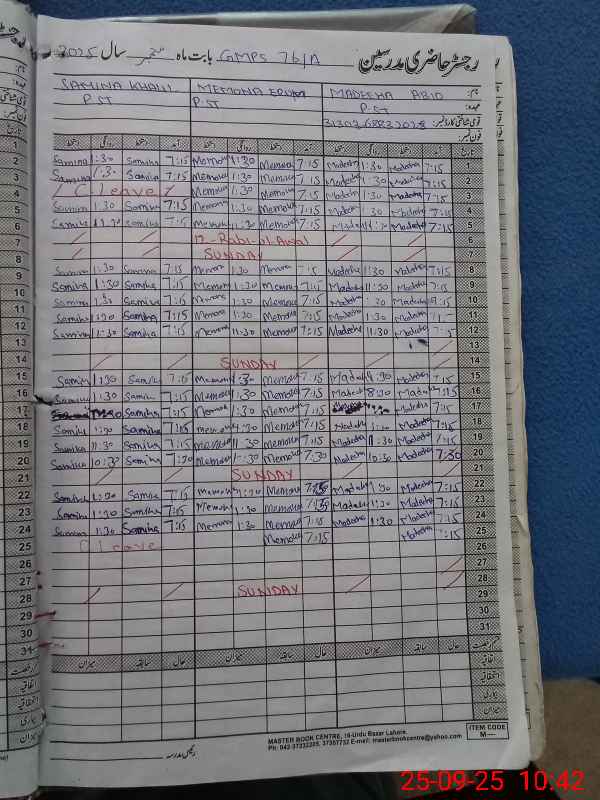 رجسٹر حاضری مدرسین GMPS 76/A بابت ماہ ستمبر سال 2025
SAMINA KHALIL MEMONA MADEEHA ABID نام:
PST PST PST عہدہ:
قومی شناختی کارڈ نمبر:
فون نمبر:
دستخط روانگی دستخط آمد دستخط روانگی دستخط آمد دستخط روانگی دستخط آمد تاریخ
Samina 1:30 Samina 7:15 Memona 1:30 Memona 7:15 Madeeha 1:30 Madeeha 7:15 1
Samina 1:30 Samina 7:15 Memona 1:30 Memona 7:15 Madeeha 1:30 Madeeha 7:15 2
C leave Memona 1:30 Memona 7:15 Madeeha 1:30 Madeeha 7:15 3
Samina 1:30 Samina 7:15 Memona 1:30 Memona 7:15 Madeeha 1:30 Madeeha 7:15 4
Samina Samina 7:15 Memona 1:30 Memona 7:15 Madeeha Madeeha 7:15 5
12-Rabi-ul-Awal 6
SUNDAY 7
Samina 1:30 Samina 7:15 Memona 1:30 Memona 7:15 Madeeha 1:30 Madeeha 7:15 8
Samina 1:30 Samina 7:15 Memona 1:30 Memona 7:15 Madeeha 1:30 Madeeha 7:15 9
Samina 1:30 Samina 7:15 Memona 1:30 Memona 7:15 Madeeha 1:30 Madeeha 7:15 10
Samina 1:30 Samina 7:15 Memona 1:30 Memona 7:15 Madeeha 1:30 Madeeha 11
Samina 1:30 Samina 7:15 Memona 11:30 Memona 7:15 Madeeha 11:30 Madeeha 7:15 12
13
SUNDAY 14
Samina 1:30 Samina 7:15 Memona 1:30 Memona 7:15 Madeeha Madeeha 7:15 15
Samina 1:30 Samina 7:15 Memona 1:30 Memona 7:15 Madeeha Madeeha 7:15 16
Samina 7:15 Memona 1:30 Memona 7:15 Madeeha 7:15 17
Samina 1:30 Samina 7:15 Memona Memona 7:15 Madeeha 1:30 Madeeha 7:15 18
Samina 11:30 Samina 7:15 Memona 11:30 Memona 7:15 Madeeha 11:30 Madeeha 7:15 19
Samina 10:30 Samina 7:30 Memona 10:30 Memona 7:30 Madeeha 10:30 Madeeha 7:30 20
SUNDAY 21
Samina 1:30 Samina 7:15 Memona 1:30 Memona Madeeha 1:30 Madeeha 7:15 22
Samina 1:30 Samina 7:15 Memona 1:30 Memona Madeeha 1:30 Madeeha 7:15 23
Samina 1:30 Samina 7:15 Memona 1:30 Memona 7:15 Madeeha 1:30 Madeeha 7:15 24
C leave Memona 7:15 Madeeha 7:15 25
26
27
SUNDAY 28
29
30
31
میزان سابقہ حال میزان سابقہ حال میزان سابقہ حال قسم رخصت
اتفاقیہ
استحقاقیہ
بیماری
میزان
MASTER BOOK CENTRE, 16-Urdu Bazar Lahore.
Ph: 042-37232205, 37357732 E-mail: masterbookcentre@yahoo.com
ITEM CODE
M—
رئیس مدرسہ
25-09-25 10:42